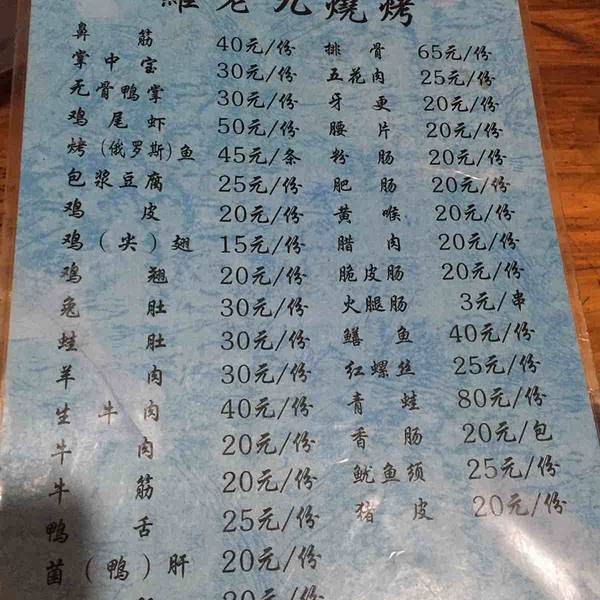 老九燒烤
鼻筋 40元/份 排骨 65元/份
掌中宝 30元/份 五花肉 25元/份
无骨鸭掌 30元/份 牙更 20元/份
鸡尾虾 50元/份 腰片 20元/份
烤(俄罗斯)鱼 45元/条 粉肠 20元/份
包浆豆腐 25元/份 肥肠 20元/份
鸡皮 20元/份 黄喉 20元/份
鸡(尖)翅 15元/份 腊肉 20元/份
鸡翘 20元/份 脆皮肠 20元/份
兔肚 30元/份 火腿肠 3元/串
蛙肚 30元/份 鳝鱼 40元/份
羊肉 30元/份 红螺丝 25元/份
生牛肉 40元/份 青蛙 80元/份
牛肉 20元/份 香肠 20元/包
牛筋 20元/份 鱿鱼须 25元/份
鸭舌 25元/份 猪皮 20元/份
菌(鸭)肝 20元/份
20元/份